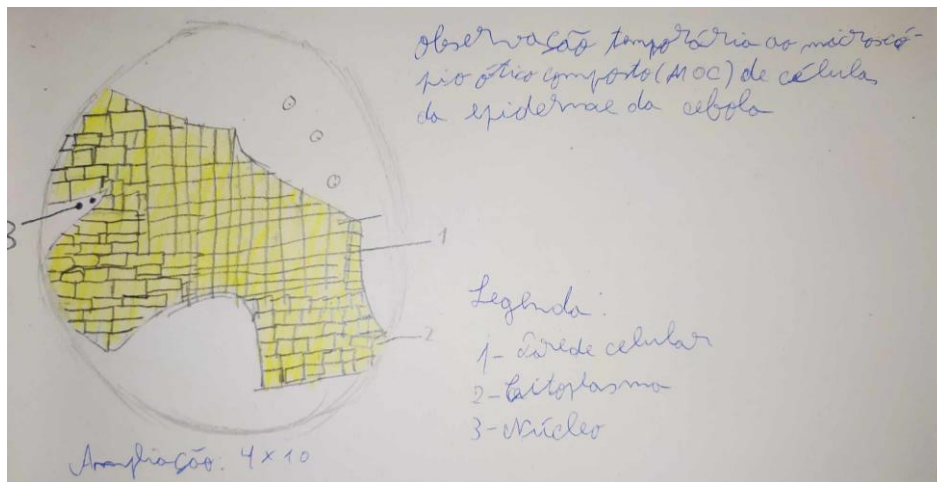 observação temporária ao microscó-
pio ótico composto (MOC) de célula
da epiderme da cebola
3
1
2
Legenda:
1- Parede celular
2- Citoplasma
3- Núcleo
Ampliação: 4x10